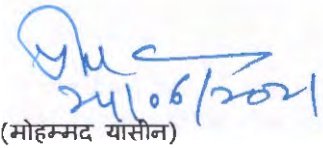 24/06/2021
(मोहम्मद यासीन)